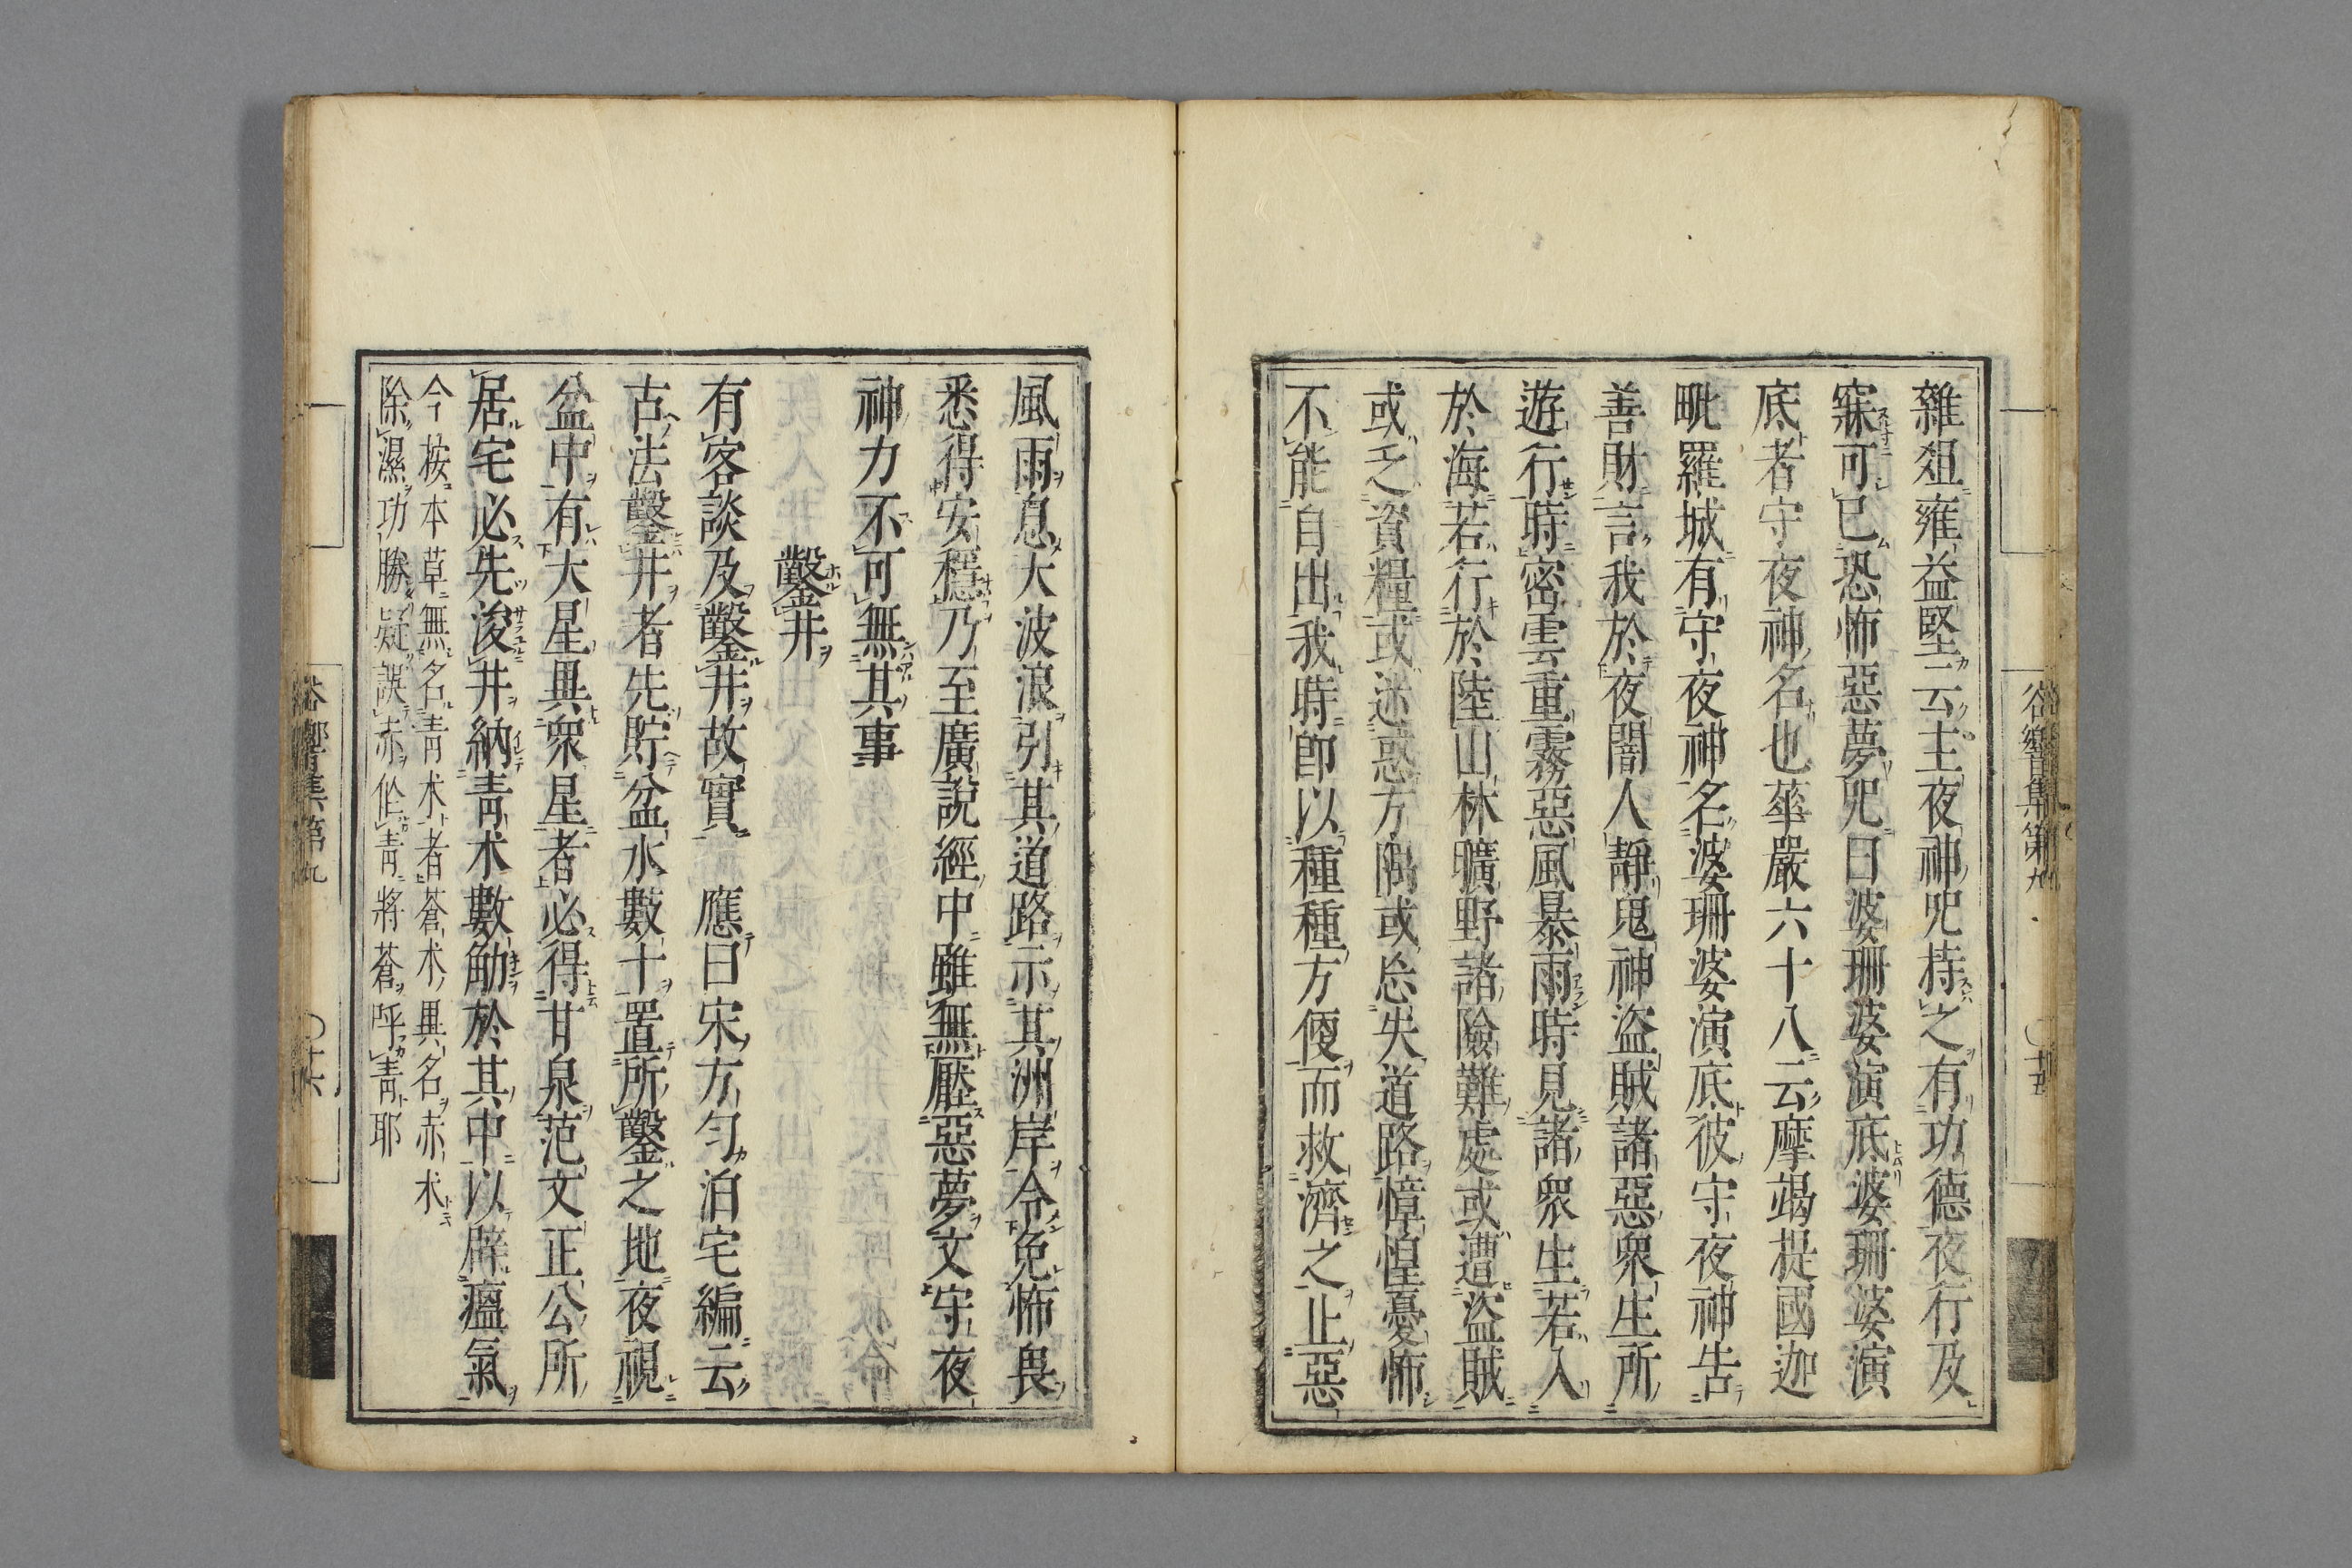 雜俎雍益堅云主夜神呪持之有功德夜行及
寐可已恐怖惡夢呪曰婆珊婆演底婆珊婆演
底者守夜神名也華嚴六十八云摩竭提國迦
毗羅城有守夜神名婆珊婆演底彼守夜神告
善財言我於夜闇人靜鬼神盜賊諸惡衆生所
遊行時密雲重霧惡風暴雨時見諸衆生若入
於海若行於陸山林曠野諸險難處或遭盜賊
或乏資糧或迷惑方隅或忘失道路慞惶憂怖
不能自出我時卽以種種方便而救濟之止惡
風雨息大波浪引其道路示其洲岸令免怖畏
悉得安穩乃至廣說經中雖無壓惡夢文守夜
神力不可無其事
鑿井
有客談及鑿井故實 應曰宋方勺泊宅編云
古法鑿井者先貯盆水數十置所鑿之地夜視
盆中有大星異衆星者必得甘泉范文正公所
居宅必先浚井納靑朮數觔於其中以辟瘟氣
今按本草無名靑朮者蒼朮異名赤朮
除濕功勝疑誤赤作靑將蒼呼靑耶
谷響集第九 〇十五
谷響集第九 〇十六